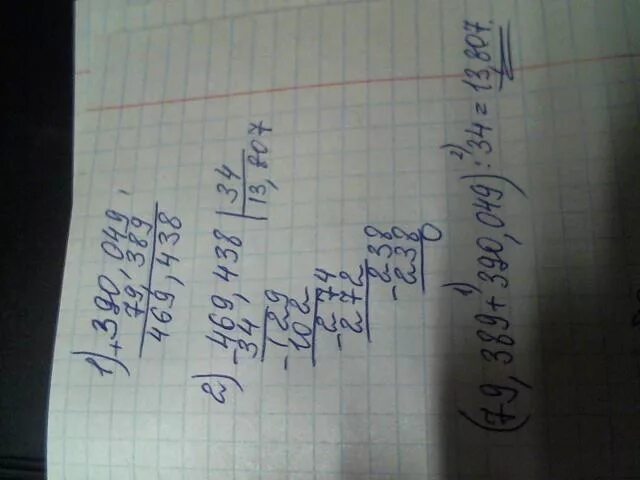 1) + 390,049
79,389
469,438
2) - 469,438 | 34
34 | 13,807
- 129
102
- 274
272
- 238
- 238
0
(79,389 + 1) 390,049) 2) : 34 = 13,807.